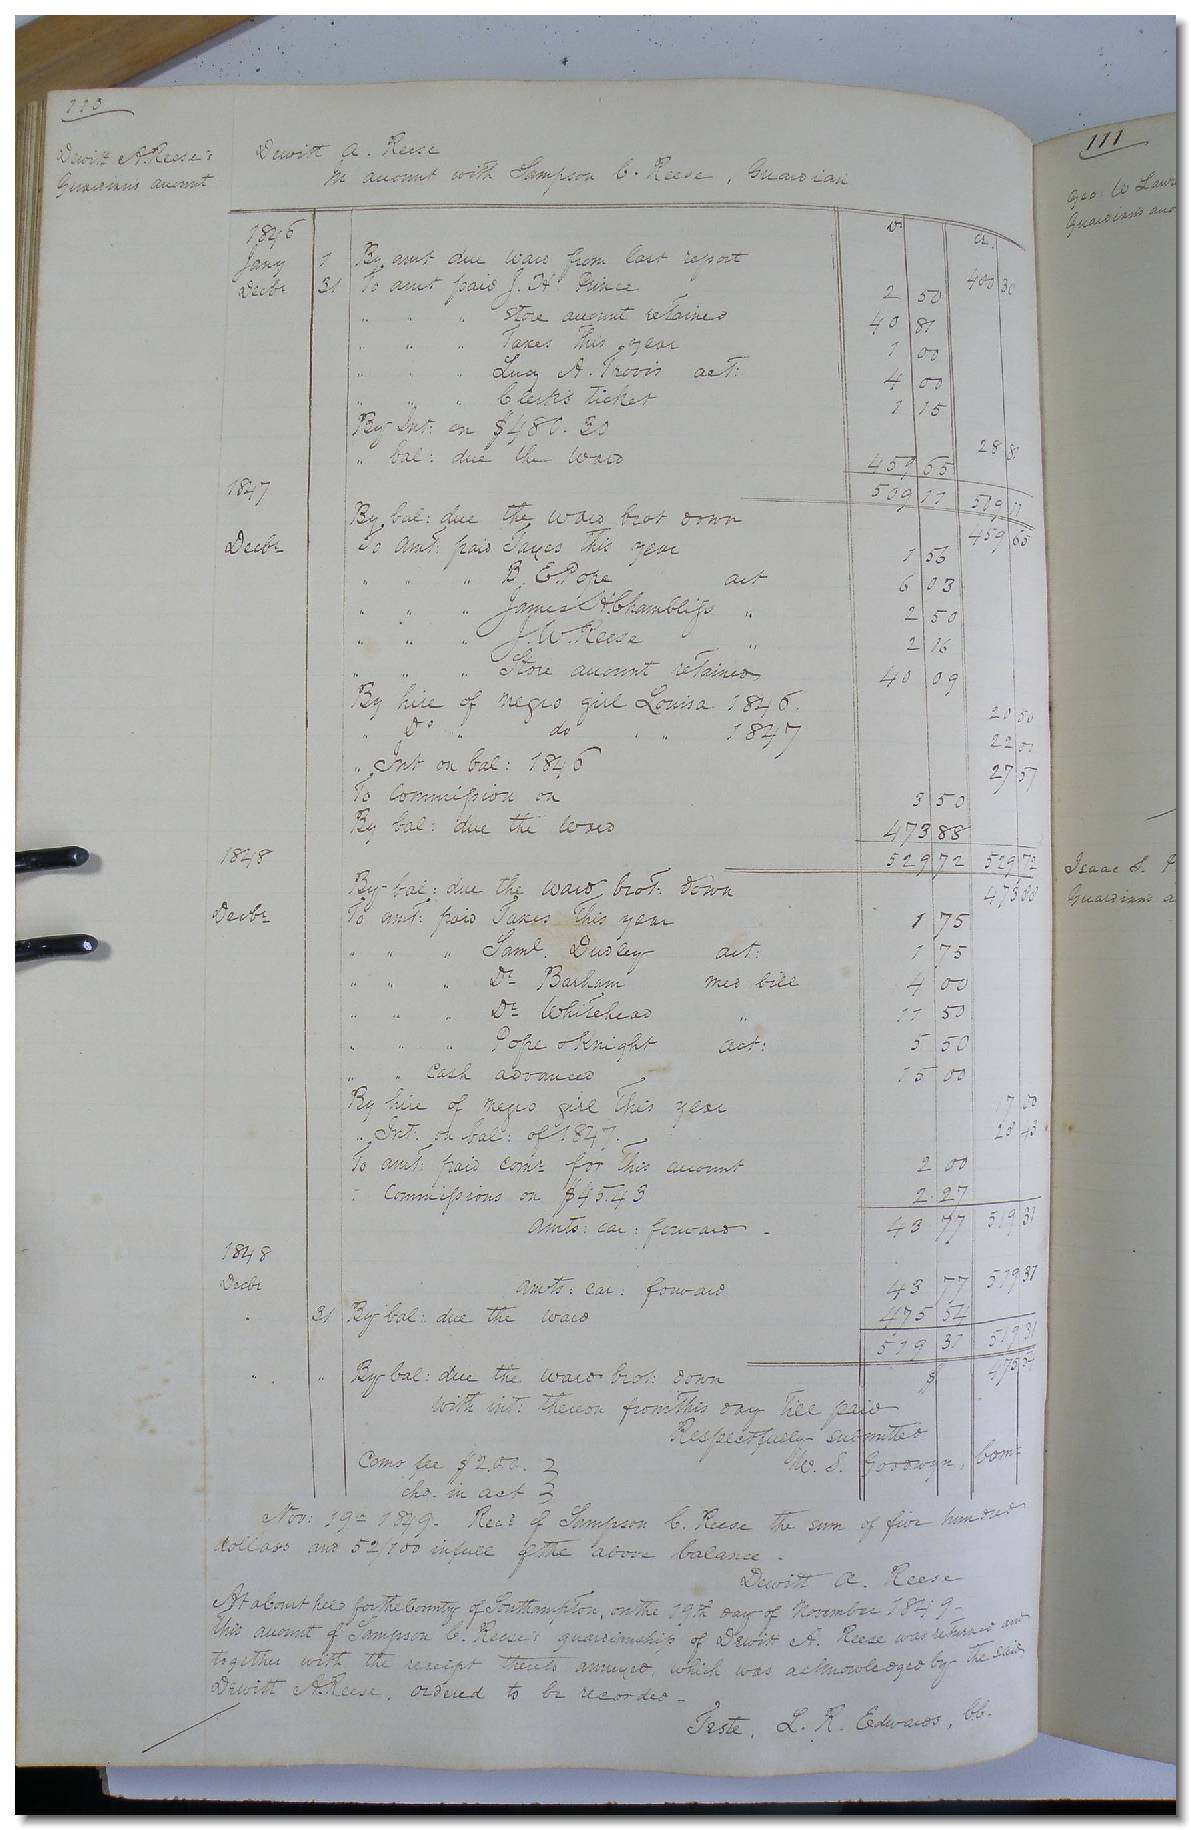 110
Dewitt A. Reese's
Guardians account
Dewitt A. Reese
In account with Sampson C. Reese, Guardian
Dr. Cr.
1846
Jany 1 By amt due ward from last report 480 30
Decbr 31 To amt paid J. H. Prince 2 50
" " " Store account retained 40 81
" " " Taxes this year 1 00
" " " Lucy A. Travis act: 4 00
" " " Clerk's ticket 1 15
By Int: on $480.30 28 81
" bal: due the ward 459 65
509 11 509 11
1847
By bal: due the ward brot down 459 65
Decbr To amt: paid Taxes this year 1 56
" " " B. E. Pope act 6 03
" " " James A. Chambliss " 2 50
" " " J. W. Reese " 2 16
" " " Store account retained 40 09
By hire of negro girl Louisa 1846. 20 50
" Do " do " " 1847 22 00
" Int on bal: 1846 27 57
To Commission on 3 50
By bal: due the ward 473 88
529 72 529 72
1848
By bal: due the ward brot: down 473 88
Decbr To amt: paid Taxes this year 1 75
" " " Saml. Dudley act: 1 75
" " " Dr Barham med bill 4 00
" " " Dr Whitehead " 11 50
" " " Pope & Knight act: 5 50
" " Cash advanced 15 00
By hire of negro girl this year 17 00
" Int: on bal: of 1847. 28 43
To amt: paid comr for this account 2 00
" Commissions on $45.43 2.27
Amts: car: forward 43 77 519 31
1848
Decbr Amts: car: forward 43 77 519 31
" 31 By bal: due the ward 475 54
519 31 519 31
" " By bal: due the ward brot: down $ 475 54
with int: thereon from this day till paid
Respectfully submitted
S. Goodwyn, Comr
Coms fee $2.00.
chd. in act
Nov: 19th 1849. Recd of Sampson C. Reese the sum of five hundred
dollars and 52/100 in full of the above balance.
Dewitt A. Reese
At a Court held for the County of Southampton, on the 19th day of November 1849.
This account of Sampson C. Reese's guardianship of Dewitt A. Reese was returned and
together with the receipt thereto annexed, which was acknowledged by the said
Dewitt A. Reese, ordered to be recorded.
Teste, L. R. Edwards, CC.
111
Geo: W Lawr
Guardians
Isaac S. P
Guardians a